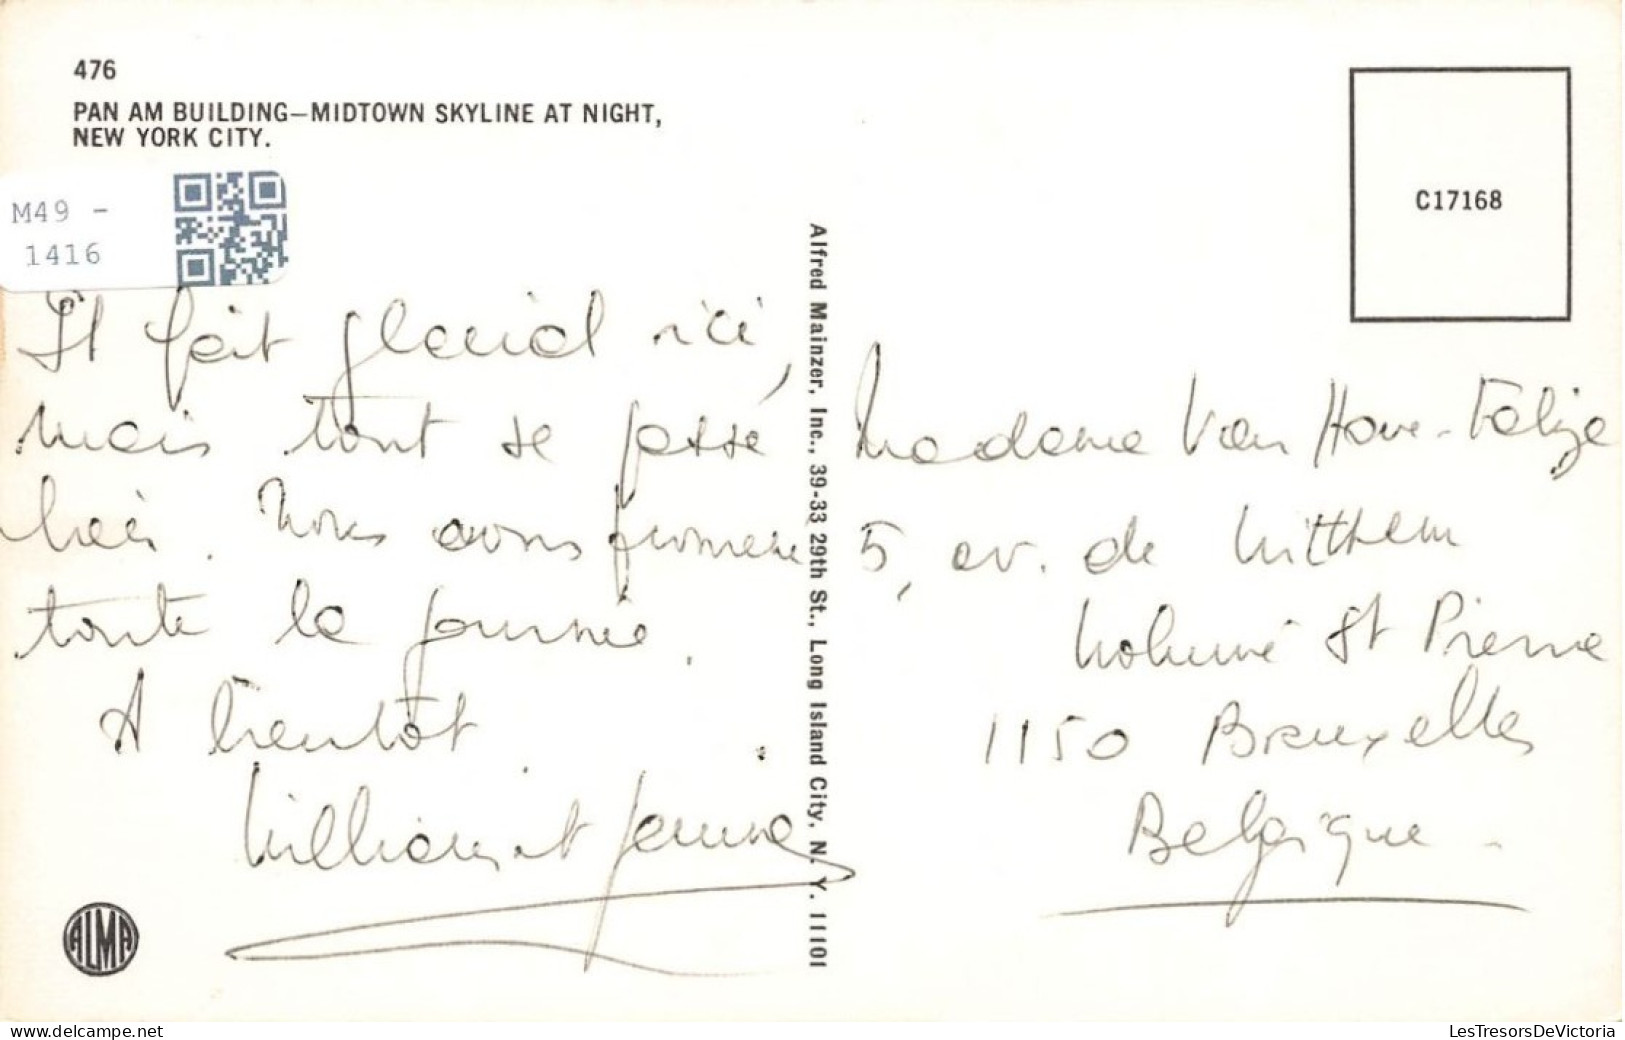 476
PAN AM BUILDING—MIDTOWN SKYLINE AT NIGHT,
NEW YORK CITY.
M49 -
1416
C17168
Il fait glacial ici,
mais tout se passe
bien. Nous avons
toute la journée.
A bientôt
William et Janine
Alfred Mainzer, Inc., 39-33 29th St., Long Island City, N. Y. 11101
Madame Van Hove-
5, av. de
St Pierre
1150 Bruxelles
Belgique
ALMA
www.delcampe.net
LesTresorsDeVictoria